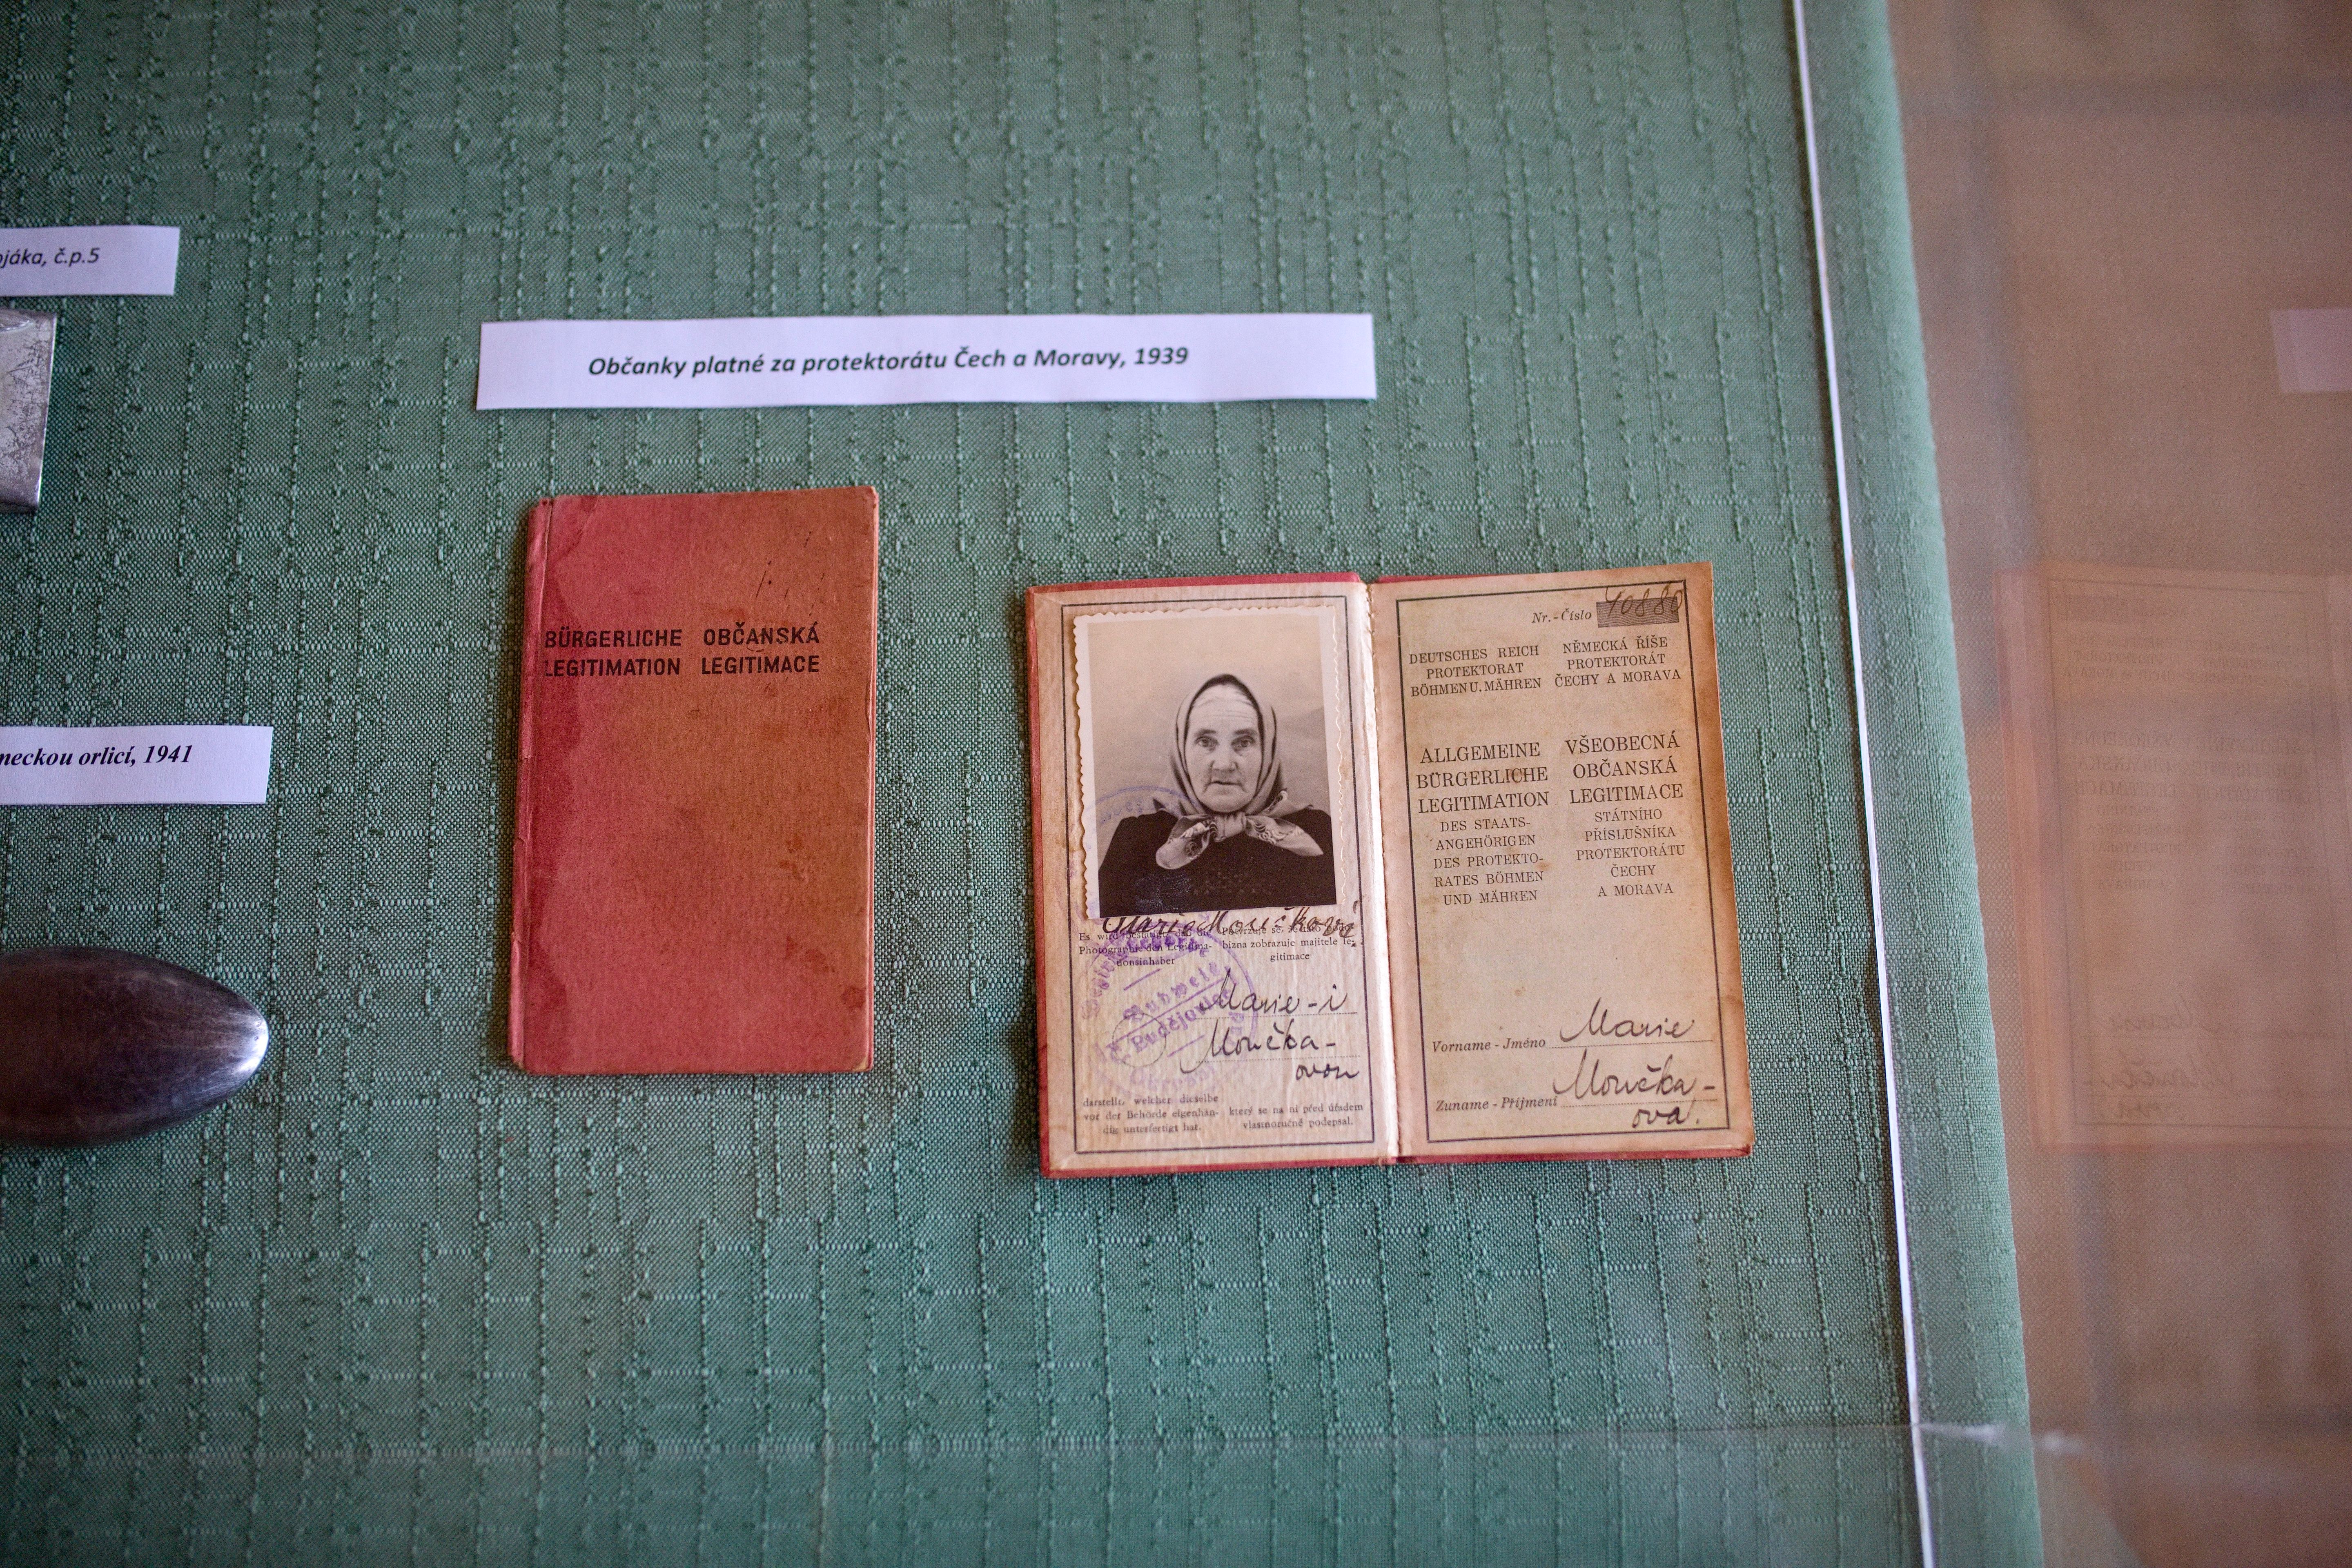 ojáka, č.p.5
Občanky platné za protektorátu Čech a Moravy, 1939
meckou orlicí, 1941
BÜRGERLICHE OBČANSKÁ
LEGITIMATION LEGITIMACE
Marie Moučková
Es wird
Photographie den Legitima-
tionsinhaber
bizna zobrazuje majitele le-
gitimace
Budweis
Budějov
Marie-i
Moučka-
ovou
darstellt, welcher dieselbe
vor der Behörde eigenhän-
dig unterfertigt hat.
který se na ní před úřadem
vlastnoručně podepsal.
Nr.-Číslo 40880
DEUTSCHES REICH
PROTEKTORAT
BÖHMEN U. MÄHREN
NĚMECKÁ ŘÍŠE
PROTEKTORÁT
ČECHY A MORAVA
ALLGEMEINE
BÜRGERLICHE
LEGITIMATION
DES STAATS-
ANGEHÖRIGEN
DES PROTEKTO-
RATES BÖHMEN
UND MÄHREN
VŠEOBECNÁ
OBČANSKÁ
LEGITIMACE
STÁTNÍHO
PŘÍSLUŠNÍKA
PROTEKTORÁTU
ČECHY
A MORAVA
Vorname - Jméno Marie
Zuname - Příjmení Moučka-
ová.